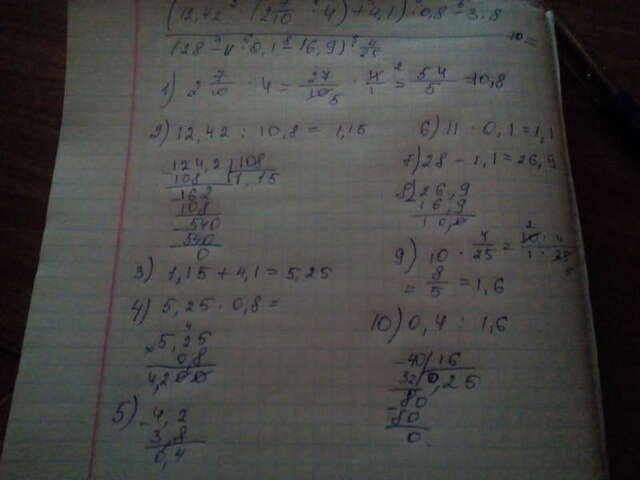 (12,42 : (2 7/10 · 4) + 4,1) · 0,8 - 3,8
(28 - 11 · 0,1 - 16,9) · 4/25
=
1) 2 7/10 · 4 = 27/10 5 · 4/1 2 = 54/5 = 10,8
2) 12,42 : 10,8 = 1,15
-124,2 | 108
108 | 1,15
-162
108
-540
540
0
3) 1,15 + 4,1 = 5,25
4) 5,25 · 0,8 =
×5,25
0,8
4,200
5) -4,2
3,8
0,4
6) 11 · 0,1 = 1,1
7) 28 - 1,1 = 26,9
8) -26,9
16,9
10,0
9) 10 · 4/25 = 2 10 · 4/1 · 25 5
= 8/5 = 1,6
10) 0,4 : 1,6
-40 | 16
32 | 0,25
-80
80
0